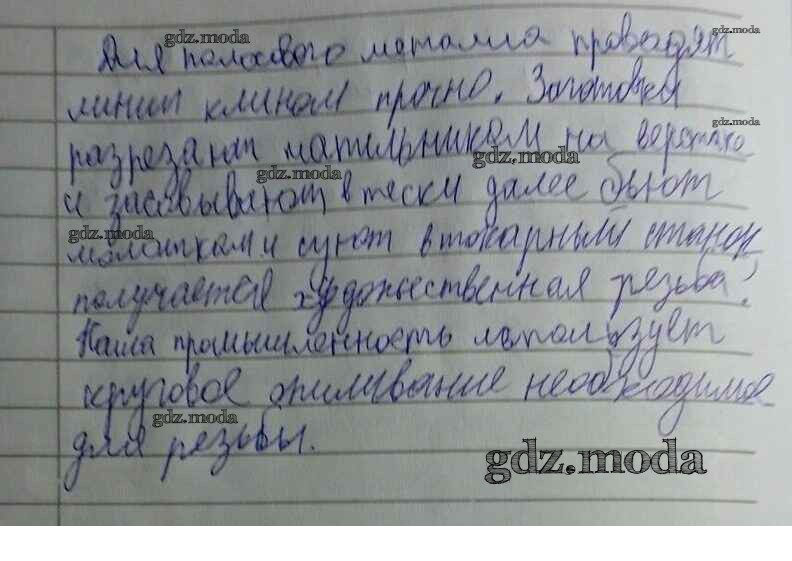 Для полосового металла проводят
линии клином прочно. Заготовка
разрезают напильником на верстаке
и засовывают в тески далее бьют
молотком и суют в токарный станок
получается художественная резьба!
Наша промышленность использует
круговое опиливание необходимое
для резьбы.
gdz.moda
gdz.moda
gdz.moda
gdz.moda
gdz.moda
gdz.moda
gdz.moda
gdz.moda
gdz.moda